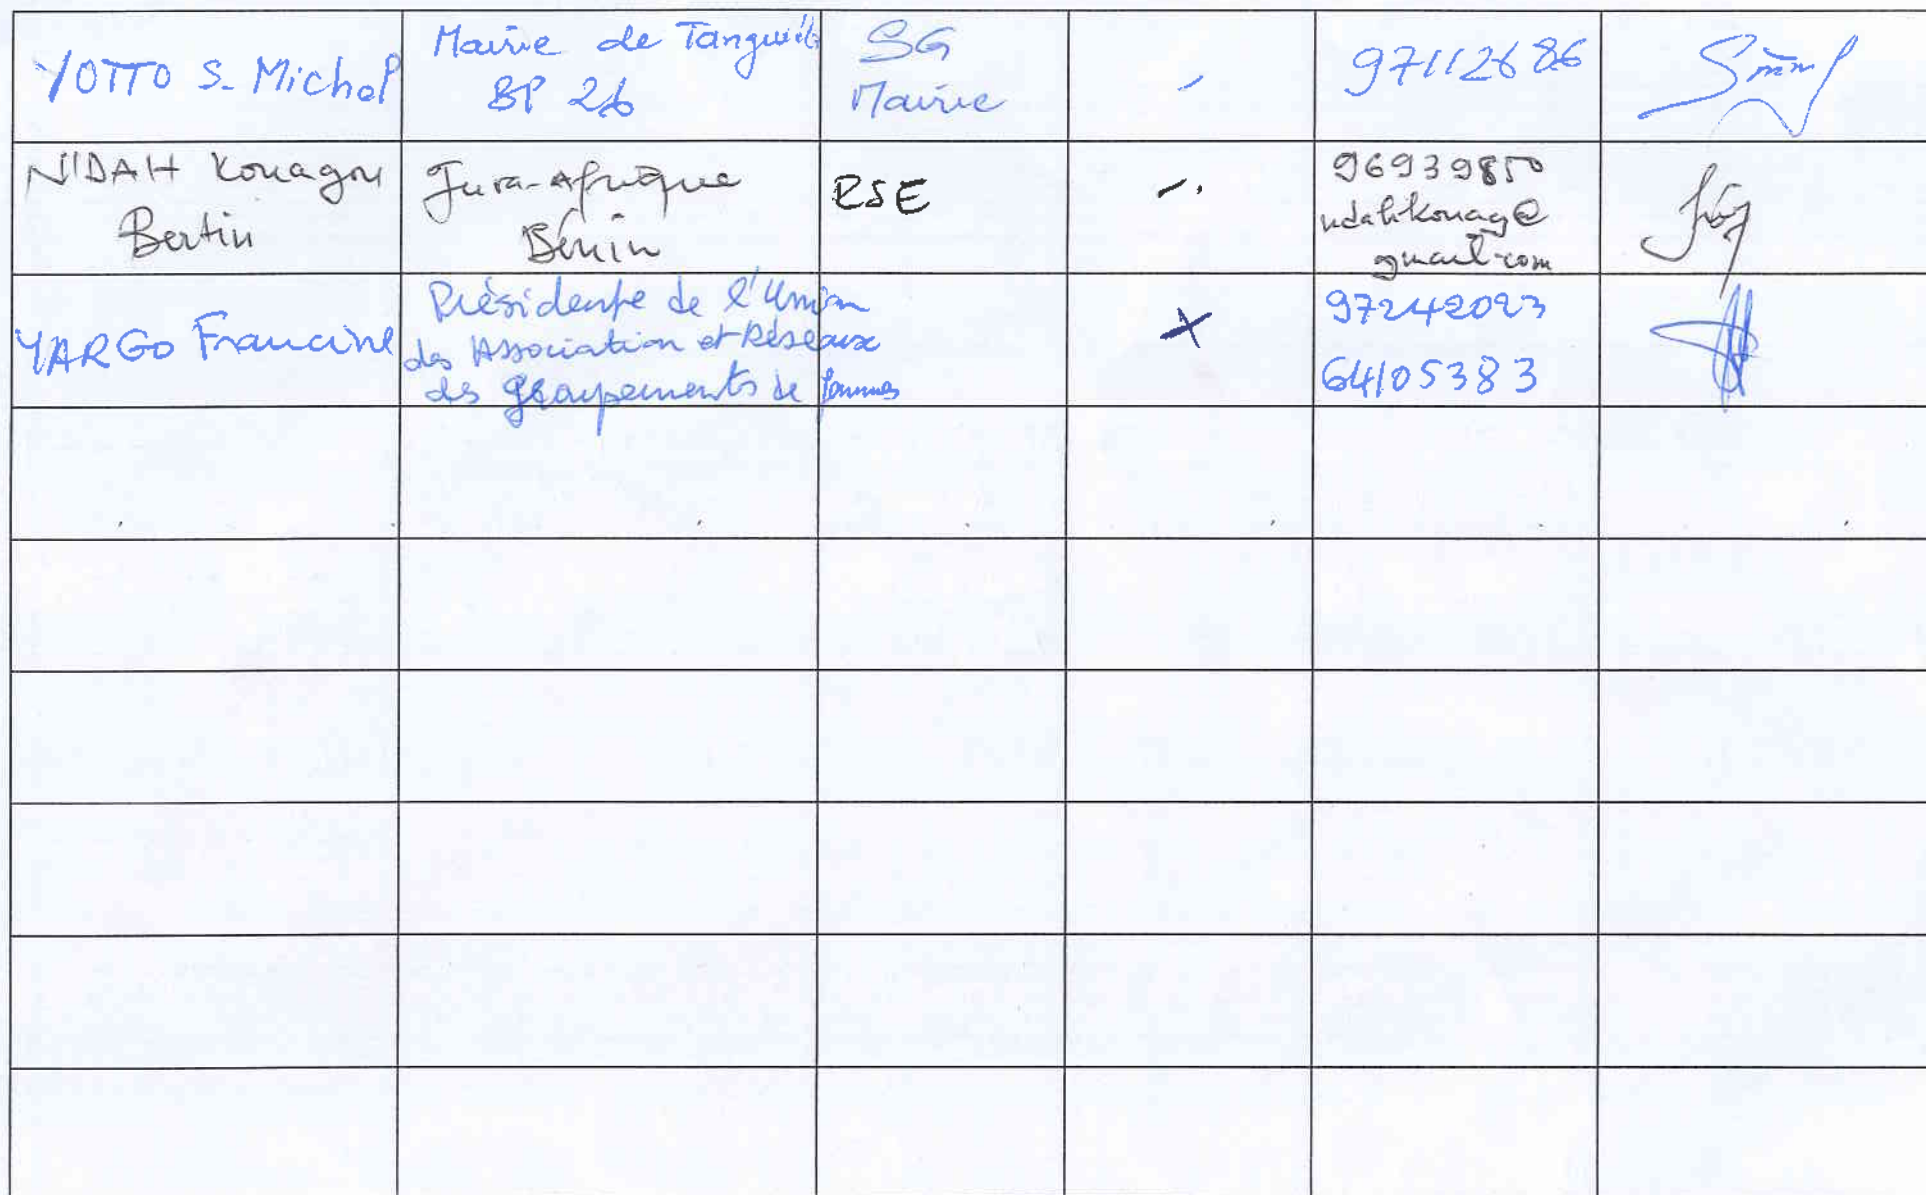 YOTTO S. Michel
Mairie de Tanguiéta
BP 26
SG
Mairie
-
97112686
N'DAH Kouagou
Bertin
Jura-Afrique
Bénin
RSE
-.
96939850
ndahkouag@
gmail.com
YARGO Francine
Présidente de l'Union
des Association et Réseaux
des groupements de femmes
X
97242023
64105383